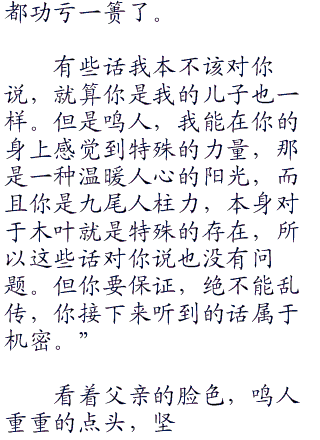 都功亏一篑了。
有些话我本不该对你
说，就算你是我的儿子也一
样。但是鸣人，我能在你的
身上感觉到特殊的力量，那
是一种温暖人心的阳光，而
且你是九尾人柱力，本身对
于木叶就是特殊的存在，所
以这些话对你说也没有问
题。但你要保证，绝不能乱
传，你接下来听到的话属于
机密。”
看着父亲的脸色，鸣人
重重的点头，坚